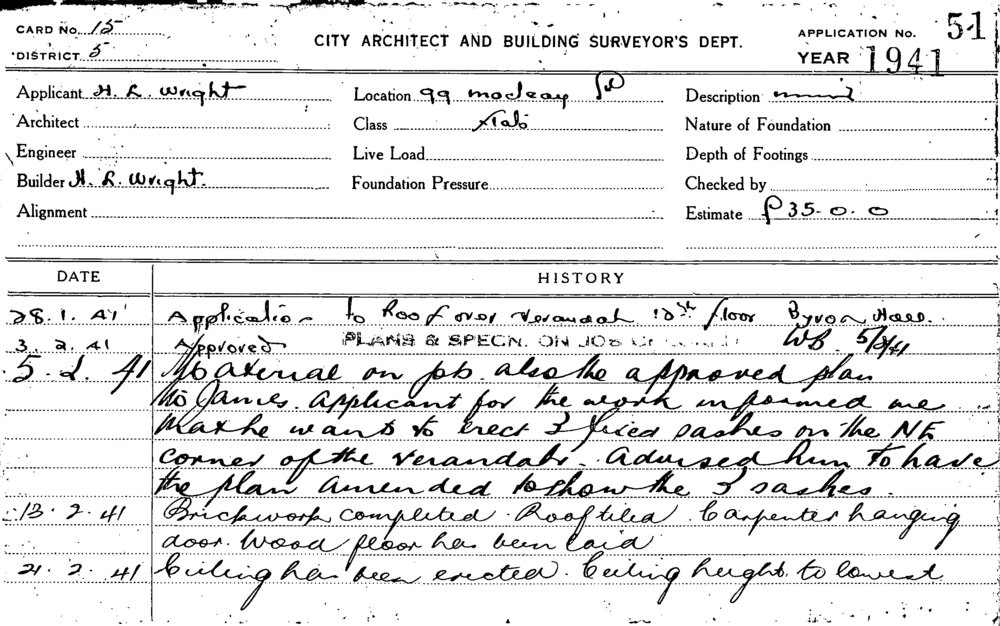 CARD No. 15
DISTRICT 5
CITY ARCHITECT AND BUILDING SURVEYOR'S DEPT.
APPLICATION No. 51
YEAR 1941
Applicant H. R. Wright
Location 99 Macleay St
Description minor
Architect
Class Flats
Nature of Foundation
Engineer
Live Load
Depth of Footings
Builder H. R. Wright.
Foundation Pressure
Checked by
Alignment
Estimate £35-0-0
DATE HISTORY
28.1.41 Application to Roof over verandah 10th floor Byron Hall.
3.2.41 Approved PLANS & SPECN. ON JOB WB 5/2/41
5.2.41 Material on job also the approved plan
Mr James applicant for the work informed me
that he wants to erect 3 fixed sashes on the NE
corner of the verandah. Advised him to have
the plan amended to show the 3 sashes.
13.2.41 Brickwork completed. Roof tiled Carpenter hanging
door. Wood floor has been laid
21.2.41 Ceiling has been erected. Ceiling height to lowest